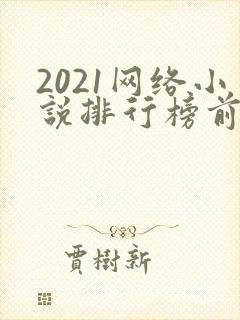 2021网络小
說排行榜前
賈樹新